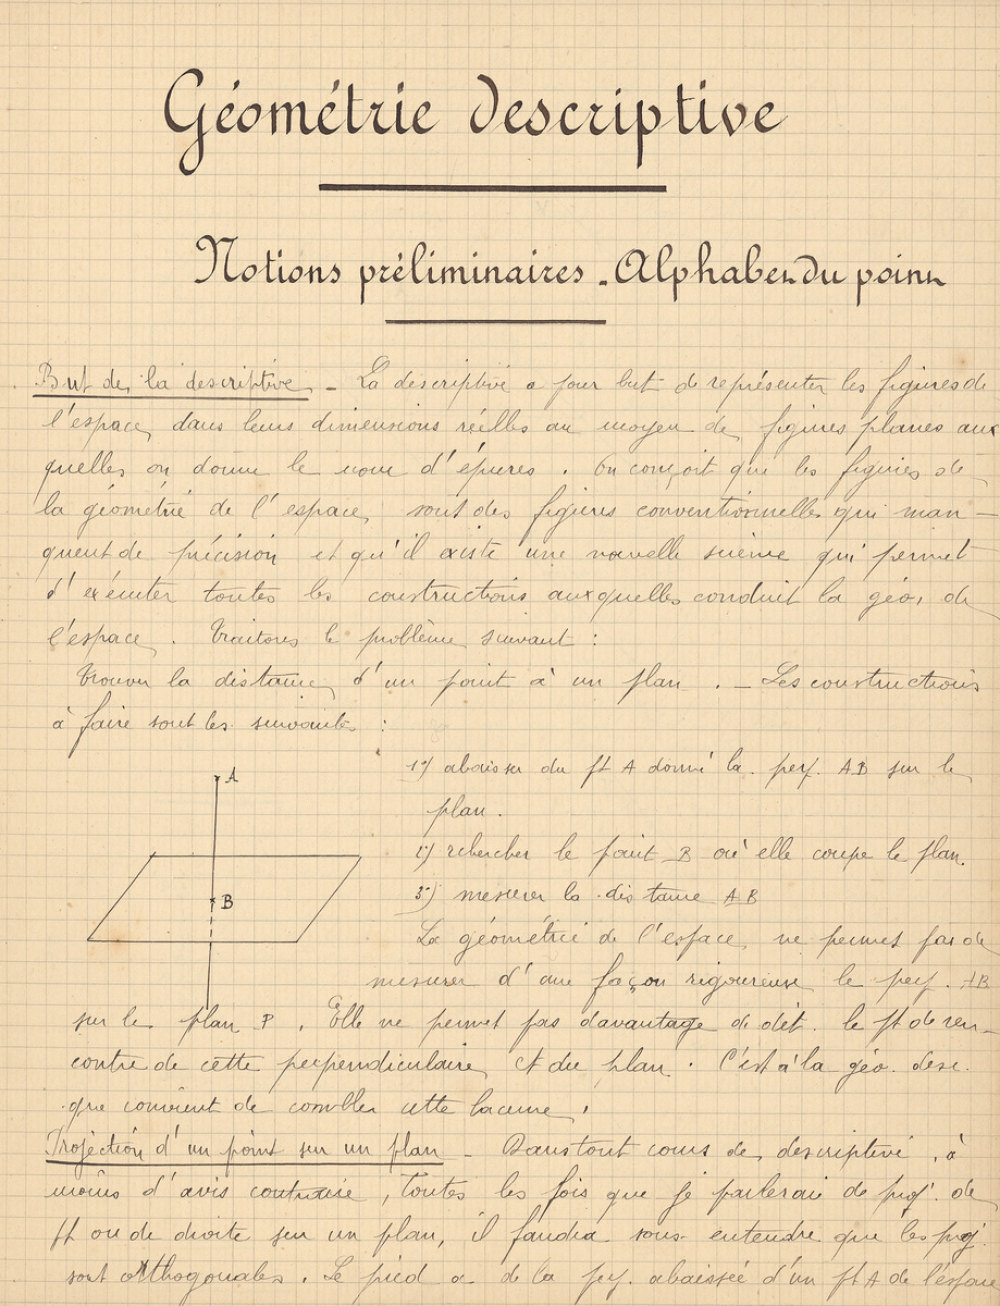 Géométrie descriptive
Notions préliminaires - Alphabet du point
But de la descriptive - La descriptive a pour but de représenter les figures de
l'espace dans leurs dimensions réelles au moyen de figures planes aux
quelles on donne le nom d'épures. On conçoit que les figures de
la géométrie de l'espace sont des figures conventionnelles qui man-
quent de précision et qu'il existe une nouvelle science qui permet
d'exécuter toutes les constructions auxquelles conduit la géo. de
l'espace. Traitons le problème suivant :
Trouver la distance d'un point à un plan. - Les constructions
à faire sont les suivantes :
1°) abaisser du pt A donné la perp. AB sur le
plan.
A
2°) rechercher le point B où elle coupe le plan.
B
3°) mesurer la distance AB
La géométrie de l'espace ne permet pas de
mesurer d'une façon rigoureuse le perp. AB
sur le plan P. Elle ne permet pas davantage de dét. le pt de ren-
contre de cette perpendiculaire et du plan. C'est à la géo. desc.
que convient de combler cette lacune.
Projection d'un point sur un plan - Dans tout cours de descriptive, à
moins d'avis contraire, toutes les fois que je parlerai de proj. de
pt ou de droite sur un plan, il faudra sous entendre que les proj.
sont orthogonales. Le pied a de la perp. abaissée d'un pt A de l'espace